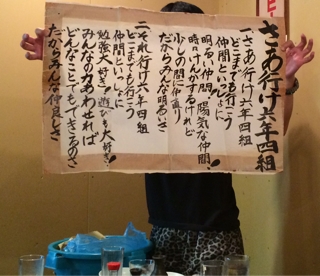 さあ行け六年四組
一さあ行け六年四組
どこまでも行こう
仲間といっしょに
明るい仲間、陽気な仲間、
時にけんかするけれど
少しの間に仲直り
だからみんな明るいさ
二それ行け六年四組
どこまでも行こう
仲間といっしょに
勉強大好き!遊びも大好き!
みんなの力あわせれば
どんなことでもできるのさ
だからみんな仲良しさ